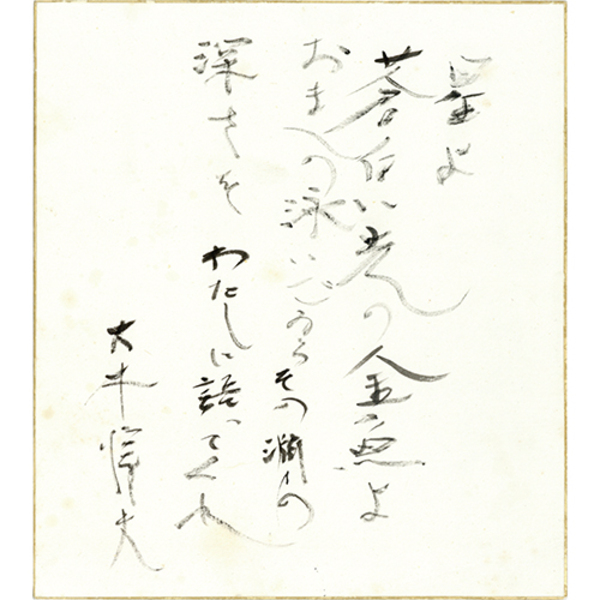 星よ
蒼白い光の金魚よ
おまへの泳いでゐるその淵の
深さを わたしに語ってくれ
大木惇夫